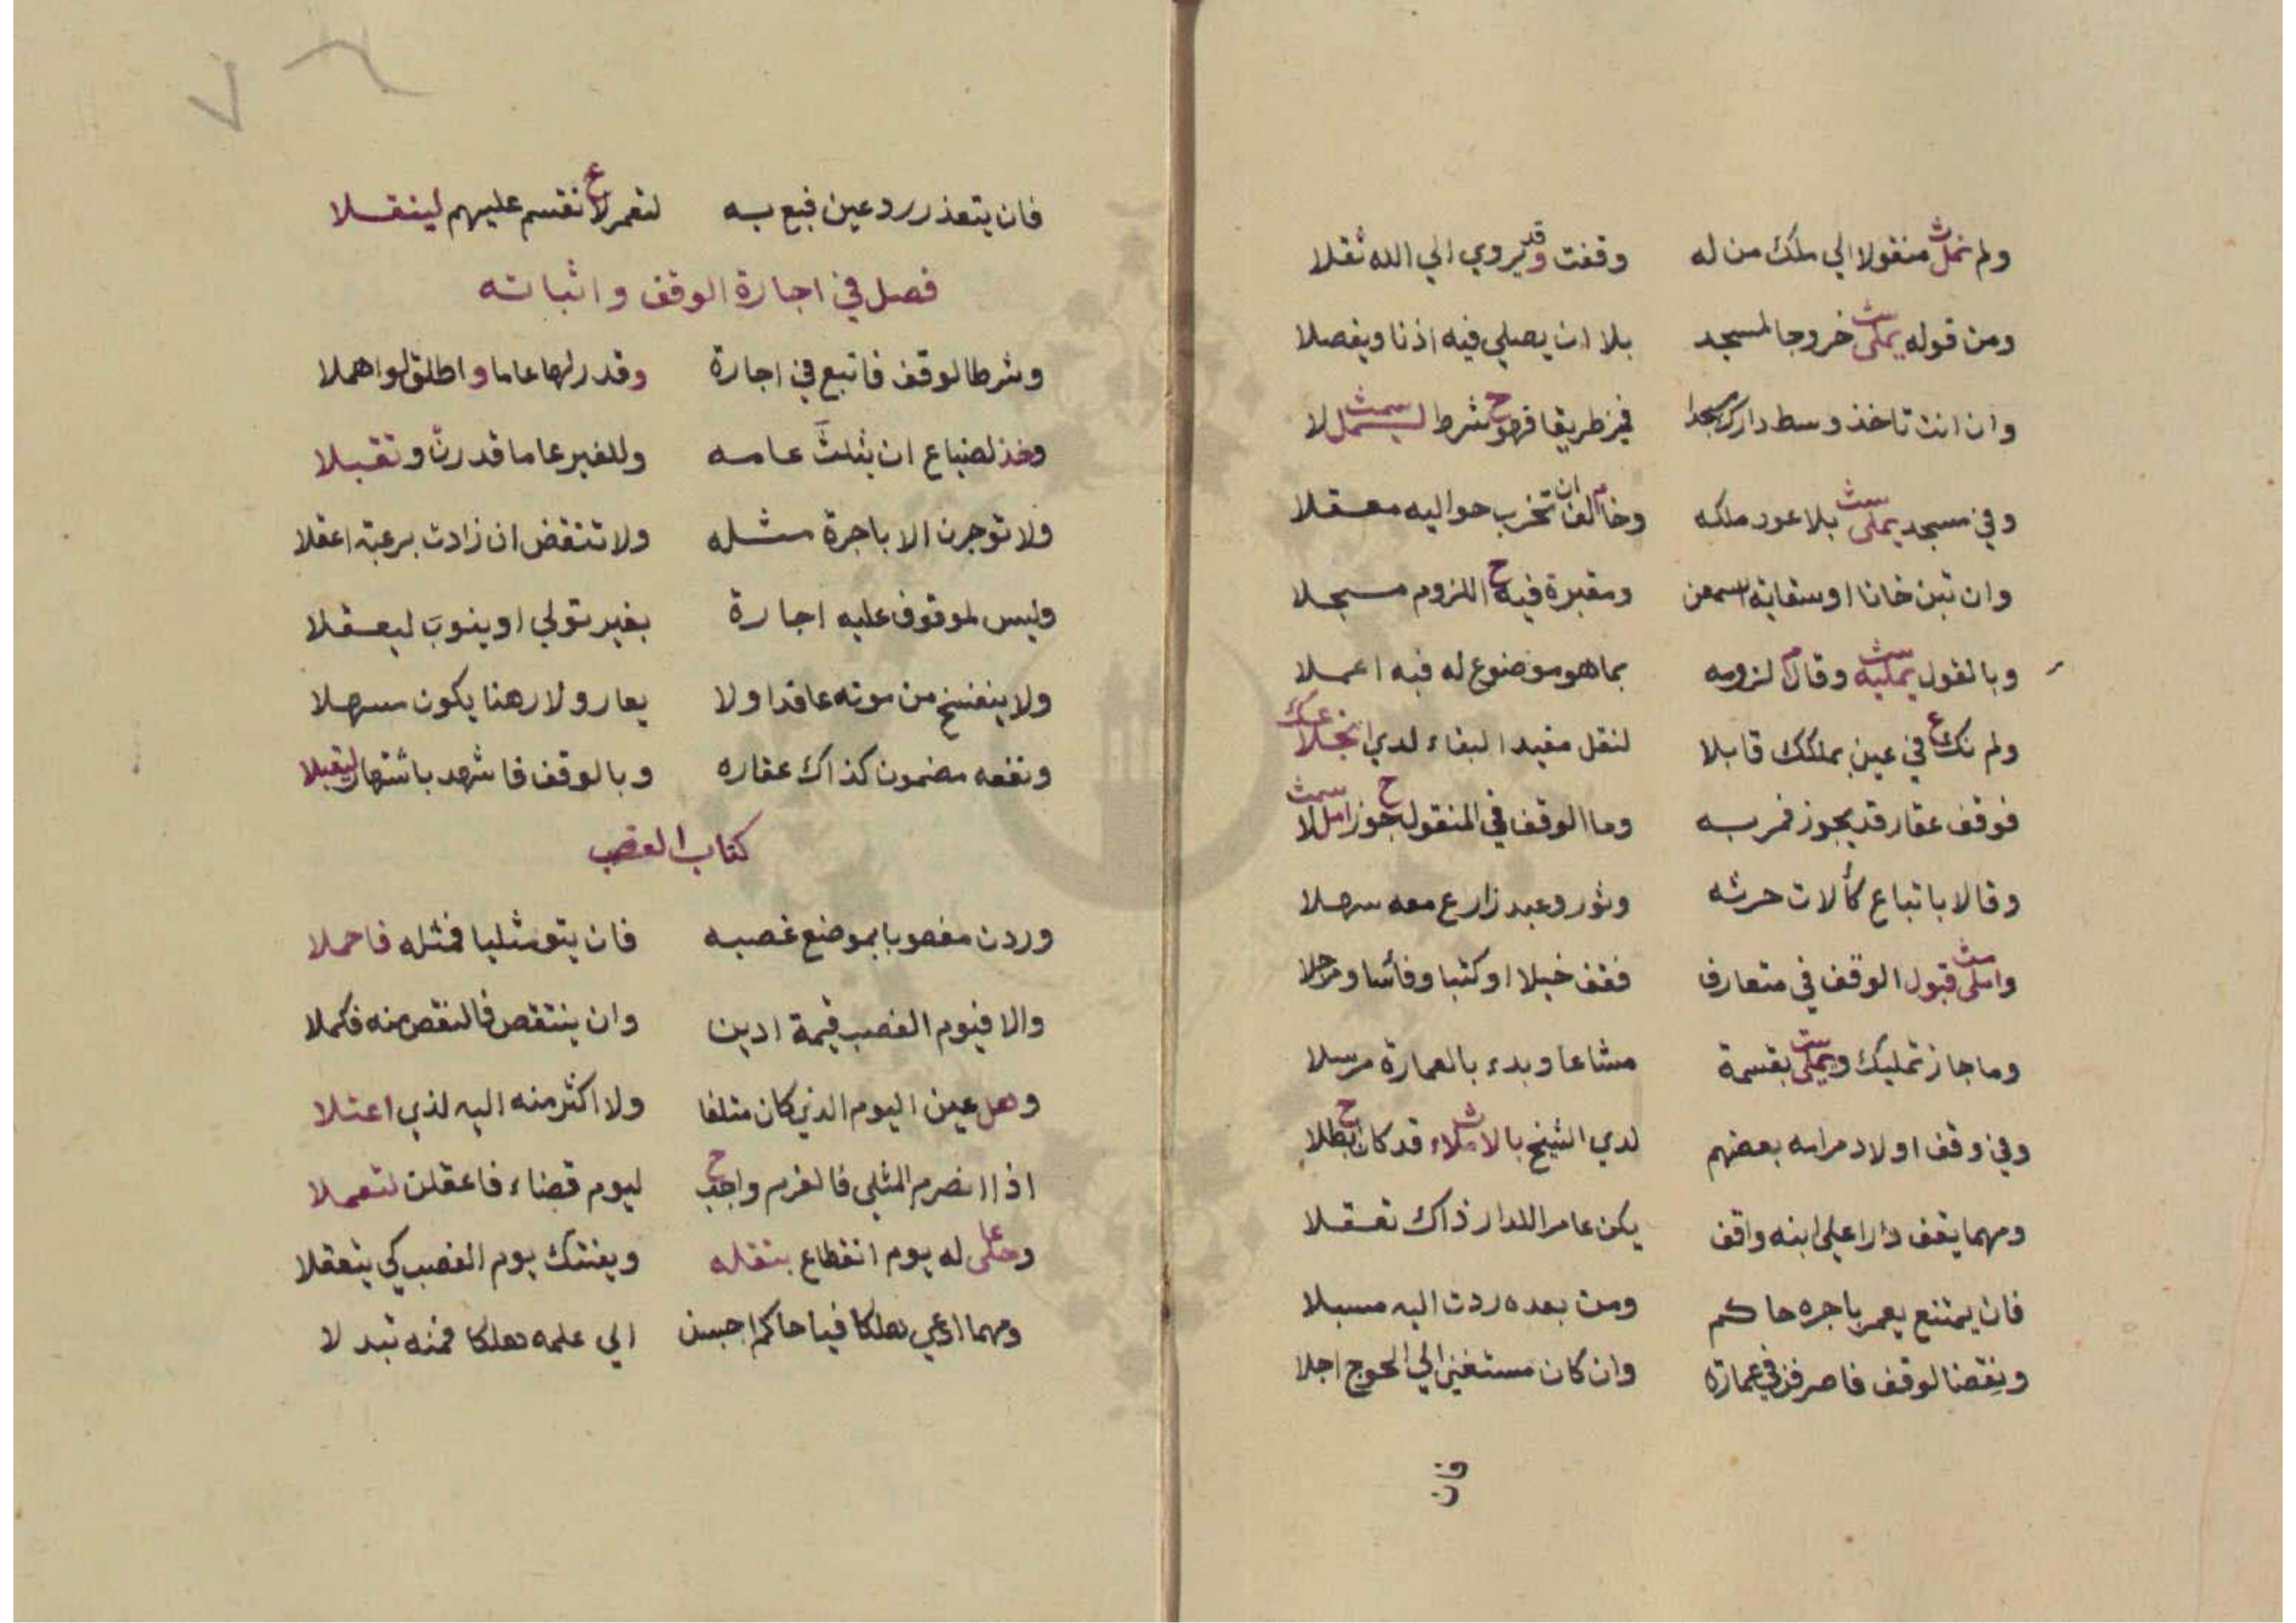 ولم نمل منقولا الي ملك من له وقفت وقد يروي الي الله نقلا
ومن قوله يملى خروجا لمسجد بلا ان يصلي فيه اذنا ويفصلا
وان انت تاخذ وسط دارك مسجدا فمز طريقا فهو شرط لا
وفي مسجد يملى بلا عود ملكه وخالف ان تخرب حواليه معقلا
وان تبن خانا او سقاية اسمعن ومقبرة فيه اللزوم مسجلا
وبالقول يمليه وقال لزومه بما هو موضوع له فيه اعملا
ولم نك في عين بملكك قابلا لنقل مفيد البقاء لدي انجلا
فوقف عقار قد يجوز فمر به وما الوقف في المنقول جوز املا
وقالا باتباع كألات حرثه وثور وعبد زارع معه سهلا
واملى قبول الوقف في متعارف فقف خيلا او كتبا وفأسا ومرجلا
وما جاز تمليك ويملى بقسمة مشاعا وبدء بالعمارة مرسلا
وفي وقف اولاد مرامه بعضهم لدي الشيخ بالاملاء قد كان ابطلا
ومهما يقف دارا علي ابنه واقف يكن عامر الدار ذاك تعقلا
فان يمتنع يعمر باجره حاكم ومن بعده ردت اليه مسبلا
ونقضا لوقف فاصرفن في عمارة وان كان مستغن الي الحوج اجلا
فان
فان يتعذر رد عين فبع به لتعمر لا نقسم عليهم لينقلا
فصل في اجارة الوقف واثباته
وشرطا لوقف فاتبع في اجارة وقدر لها عاما واطلق لو اهملا
وخذ لضياع ان يثلث عامه وللغير عاما قدرن وتقبلا
ولا توجرن الا باجرة مثله ولا تنتقض ان زادت برعبة اعقلا
وليس لموقوف عليه اجارة بغير تولي او ينوب ليعقلا
ولا ينفسخ من موته عاقدا ولا يعار ولا رهنا يكون مسهلا
ونفعه مضمون كذاك عقاره وبالوقف فاشهد باشتهار ليقبلا
كتاب الغصب
وردن مغصوبا بموضع غصبه فان يتو مثليا فمثله فاحملا
والا فيوم الغصب قيمة ادين وان ينتقص فالنقص منه فكملا
وهل عين اليوم الذي كان متلفا ولا اكثر منه اليه لذي اعتلا
اذا انصرم المثلي فالغرم واجب ليوم قضاء فاعقلن لتعملا
وحلى له يوم انقطاع بنقله ويفتك يوم الغصب كي يتعقلا
ومهما ادعي هلكا فيا حاكم احبسن الي علمه هلكا فمنه تبدلا